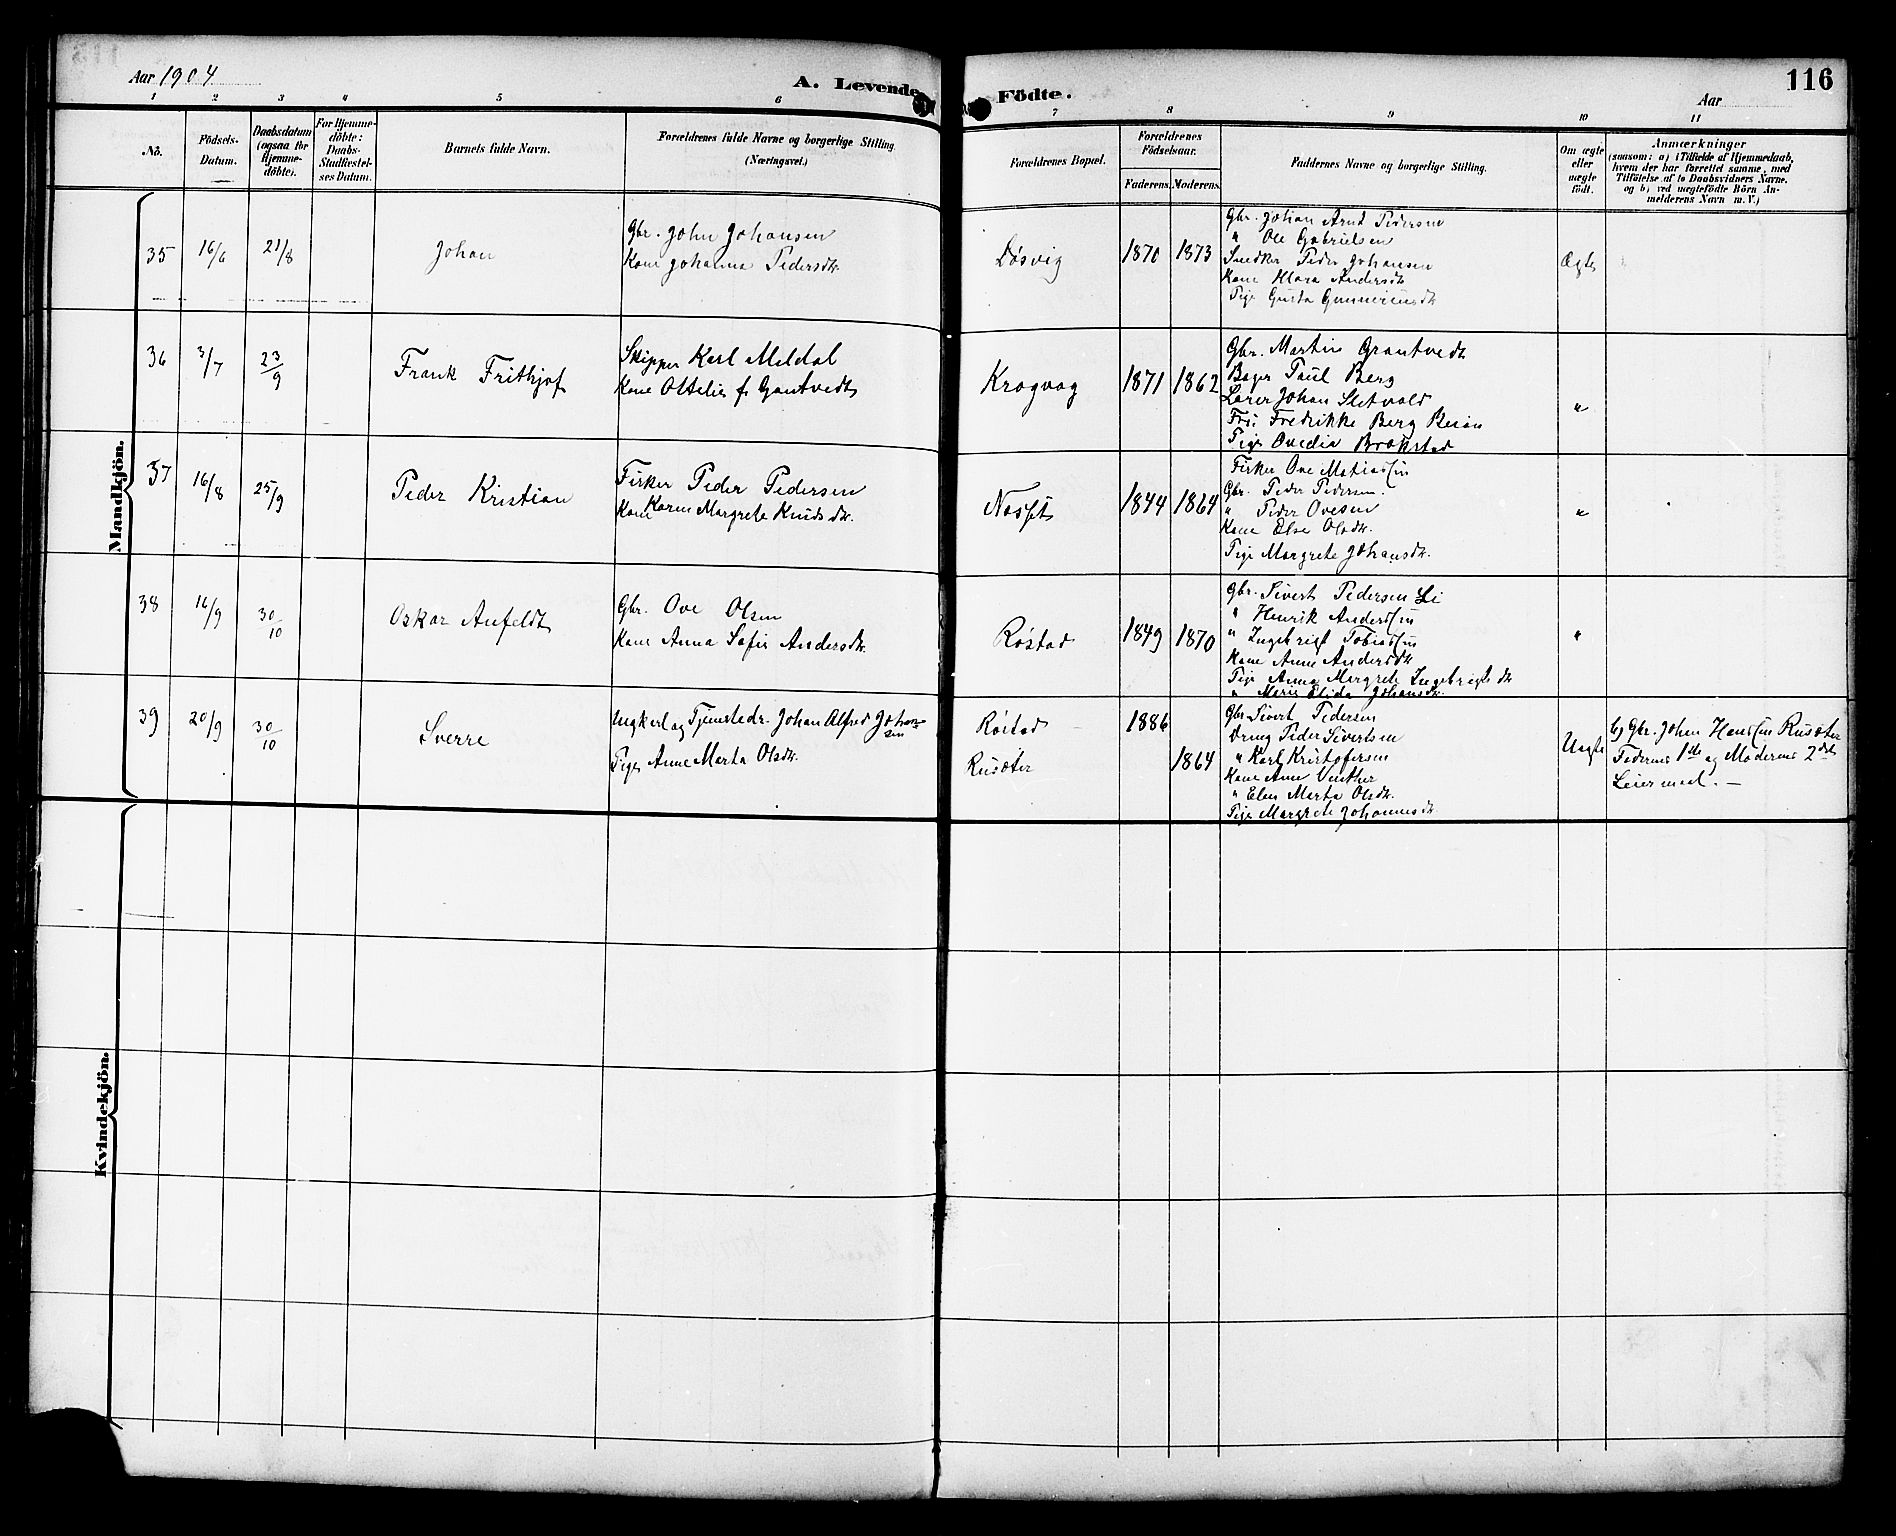 Aar 1904.
A. Levende
Födte.
Aar
116
1 2 3 4 5 6 7 8 9 10 11
No.
Födsels-
Datum.
Daabsdatum
(ogsaa for
Hjemme-
döbte).
For Hjemme-
döbte:
Daabs-
Stadfæstel-
ses Datum.
Barnets fulde Navn.
Forældrenes fulde Navne og borgerlige Stilling
(Næringsvei.)
Forældrenes Bopæl.
Forældrenes
Födselsaar.
Faderens. Moderens.
Faddernes Navne og borgerlige Stilling.
Om ægte
eller
uægte
födt.
Anmærkninger
(saasom: a) i Tilfælde af Hjemmedaab,
hvem der har forrettet samme, med
Tilföielse af to Daabsvidners Navne.
og b) ved uægtefödte Börn An-
melderens Navn m. V.)
Mandkjön.
35 16/6 21/8 Johan
Gbr. John Johansen
Kone Johanna Pedersdtr.
Døsvig 1870 1873
Gbr. Johan Arnt Pedersen
" Ole Gabrielsen
Snedker Peder Johansen
Kone Klara Andersdtr
Pige Gusta Gunneriusdtr
Ægte
36 3/7 23/9 Frank Frithjof
Skipper Karl Meldal
Kone Ottelie f. Grøntvedt
Kragvag 1871 1862
Gbr. Martin Grøntvedt
Bager Paul Berg
Lærer Johan Sletvold
Frk: Fredrikke Berg Beian
Pige Ovedia Brækstad
"
37 16/8 25/9 Peder Kristian
Fisker Peder Pedersen
Kone Karen Margrete Knudsdtr.
Næsset 1844 1864
Fisker Ove Matiassen
Gbr. Peder Pedersen.
" Peder Ovesen
Kone Else Olsdtr.
Pige Margrete Johansdtr.
"
38 16/9 30/10 Oskar Anfeldt
Gbr. Ove Olsen
Kone Anna Sofie Andersdtr.
Røstad 1849 1870
Gbr. Sivert Pedersen Li
" Henrik Anderssen
" Ingebrigt Tobiassen
Kone Anne Andersdtr
Pige Anna Margrete Ingebrigtsdtr
" Marie Elida Johansdtr.
"
39 20/9 30/10 Sverre
Ungkarl og Tjenestedr. Johan Alfred Johan-
sen
Pige Anne Marta Olsdtr.
Røstad 1886
Rusæter 1864
Gbr Sivert Pedersen
Dreng Peder Sivertsen
" Karl Kristofersen
Kone Anne Vinther
" Elen Marta Olsdtr.
Pige Margrete Johannesdtr
Uægte
b) Gbr. Johan Hanssen Rusæter
Faderens 1ste og Moderens 2det
Leiermaal. —
Kvindekjön.